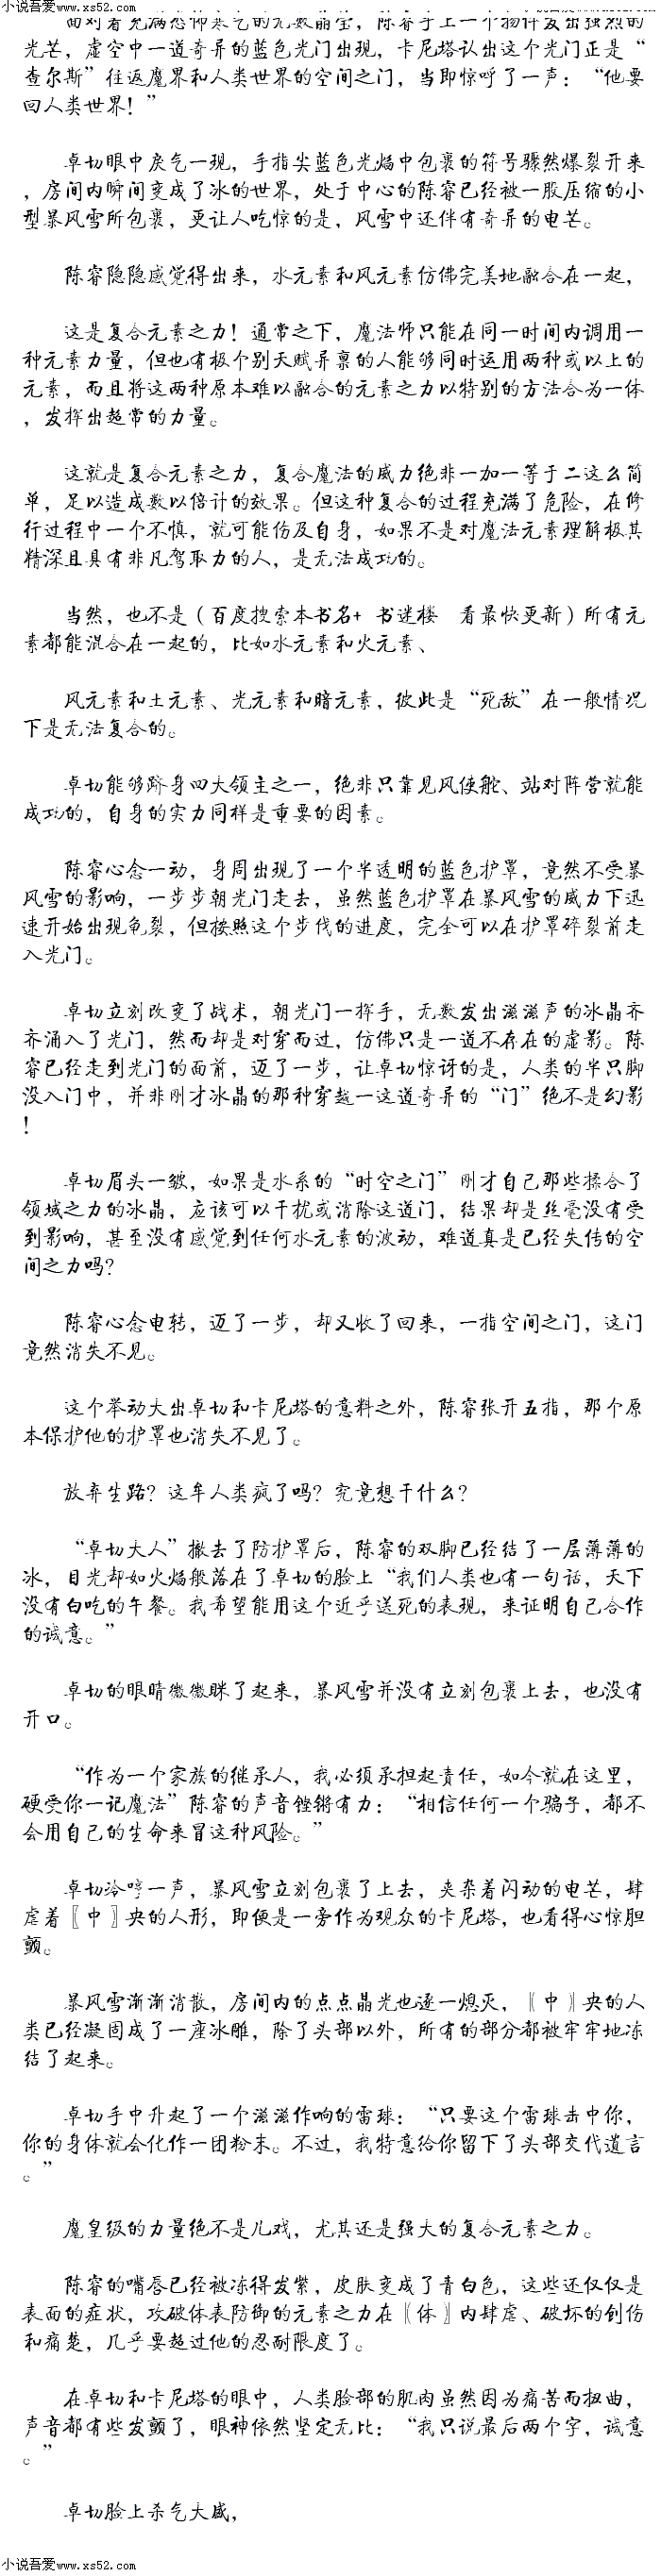 小说吾爱www.xs52.com
面对着充满恐怖寒气的无数晶莹，陈睿手上一个物件发出强烈的
光芒，虚空中一道奇异的蓝色光门出现，卡尼塔认出这个光门正是“
查尔斯”往返魔界和人类世界的空间之门，当即惊呼了一声：“他要
回人类世界！”
卓切眼中戾气一现，手指尖蓝色光焰中包裹的符号骤然爆裂开来
，房间内瞬间变成了冰的世界，处于中心的陈睿已经被一股压缩的小
型暴风雪所包裹，更让人吃惊的是，风雪中还伴有奇异的电芒。
陈睿隐隐感觉得出来，水元素和风元素仿佛完美地融合在一起，
这是复合元素之力！通常之下，魔法师只能在同一时间内调用一
种元素力量，但也有极个别天赋异禀的人能够同时运用两种或以上的
元素，而且将这两种原本难以融合的元素之力以特别的方法合为一体
，发挥出超常的力量。
这就是复合元素之力，复合魔法的威力绝非一加一等于二这么简
单，足以造成数以倍计的效果。但这种复合的过程充满了危险，在修
行过程中一个不慎，就可能伤及自身，如果不是对魔法元素理解极其
精深且具有非凡驾驭力的人，是无法成功的。
当然，也不是（百度搜索本书名+ 书迷楼 看最快更新）所有元
素都能混合在一起的，比如水元素和火元素、
风元素和土元素、光元素和暗元素，彼此是“死敌”在一般情况
下是无法复合的。
卓切能够跻身四大领主之一，绝非只靠见风使舵、站对阵营就能
成功的，自身的实力同样是重要的因素。
陈睿心念一动，身周出现了一个半透明的蓝色护罩，竟然不受暴
风雪的影响，一步步朝光门走去，虽然蓝色护罩在暴风雪的威力下迅
速开始出现龟裂，但按照这个步伐的进度，完全可以在护罩碎裂前走
入光门。
卓切立刻改变了战术，朝光门一挥手，无数发出滋滋声的冰晶齐
齐涌入了光门，然而却是对穿而过，仿佛只是一道不存在的虚影。陈
睿已经走到光门的面前，迈了一步，让卓切惊讶的是，人类的半只脚
没入门中，并非刚才冰晶的那种穿越一这道奇异的“门”绝不是幻影
！
卓切眉头一皱，如果是水系的“时空之门”刚才自己那些揉合了
领域之力的冰晶，应该可以干扰或消除这道门，结果却是丝毫没有受
到影响，甚至没有感觉到任何水元素的波动，难道真是已经失传的空
间之力吗？
陈睿心念电转，迈了一步，却又收了回来，一指空间之门，这门
竟然消失不见。
这个举动大出卓切和卡尼塔的意料之外，陈睿张开五指，那个原
本保护他的护罩也消失不见了。
放弃生路？这牟人类疯了吗？究竟想干什么？
“卓切大人”撤去了防护罩后，陈睿的双脚已经结了一层薄薄的
冰，目光却如火焰般落在了卓切的脸上“我们人类也有一句话，天下
没有白吃的午餐。我希望能用这个近乎送死的表现，来证明自己合作
的诚意。”
卓切的眼睛微微眯了起来，暴风雪并没有立刻包裹上去，也没有
开口。
“作为一个家族的继承人，我必须承担起责任，如今就在这里，
硬受你一记魔法”陈睿的声音铿锵有力：“相信任何一个骗子，都不
会用自己的生命来冒这种风险。”
卓切冷哼一声，暴风雪立刻包裹了上去，夹杂着闪动的电芒，肆
虐着〖中〗央的人形，即便是一旁作为观众的卡尼塔，也看得心惊胆
颤。
暴风雪渐渐消散，房间内的点点晶光也逐一熄灭，〖中〗央的人
类已经凝固成了一座冰雕，除了头部以外，所有的部分都被牢牢地冻
结了起来。
卓切手中升起了一个滋滋作响的雷球：“只要这个雷球击中你，
你的身体就会化作一团粉末。不过，我特意给你留下了头部交代遗言
。”
魔皇级的力量绝不是儿戏，尤其还是强大的复合元素之力。
陈睿的嘴唇已经被冻得发紫，皮肤变成了青白色，这些还仅仅是
表面的症状，攻破体表防御的元素之力在〖体〗内肆虐、破坏的创伤
和痛楚，几乎要超过他的忍耐限度了。
在卓切和卡尼塔的眼中，人类脸部的肌肉虽然因为痛苦而扭曲，
声音都有些发颤了，眼神依然坚定无比：“我只说最后两个字，诚意
。”
卓切脸上杀气大盛，
小说吾爱www.xs52.com